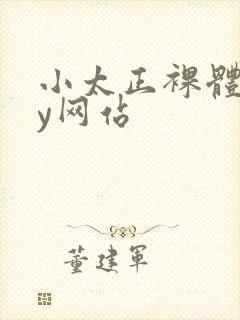 小太正裸體
y网佔
董建军